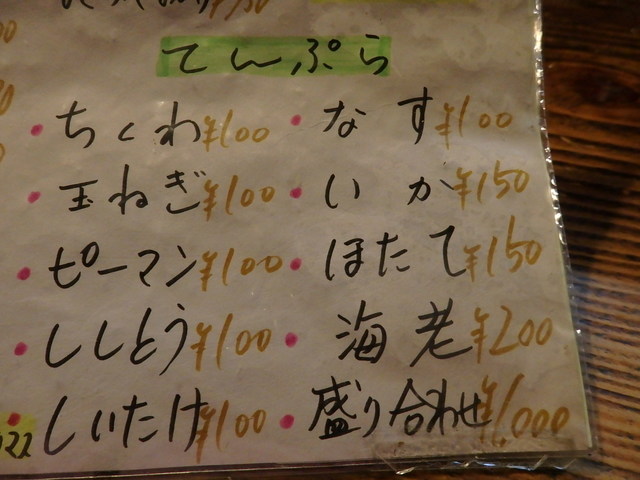 てんぷら
ちくわ ¥100
玉ねぎ ¥100
ピーマン ¥100
ししとう ¥100
しいたけ ¥100
なす ¥100
いか ¥150
ほたて ¥150
海老 ¥200
盛り合わせ ¥1,000